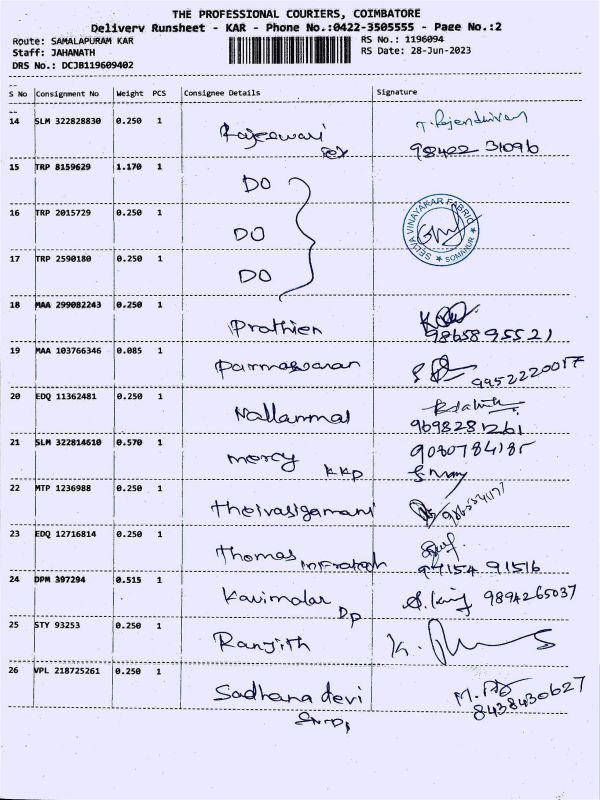 THE PROFESSIONAL COURIERS, COIMBATORE
Delivery Runsheet - KAR - Phone No.:0422-3505555 - Page No.:2
Route: SAMALAPURAM KAR RS No.: 1196094
Staff: JAHANATH RS Date: 28-Jun-2023
DRS No.: DCJB119609402
S No Consignment No Weight PCS Consignee Details Signature
14 SLM 322828830 0.250 1 Rajeswari T. Rajendhiran
98422 31096
15 TRP 8159629 1.170 1 DO
16 TRP 2015729 0.250 1 DO
SELVA VINAYAKAR FABRIC ★ SOMANUR ★
17 TRP 2590180 0.250 1 DO
18 MAA 299082243 0.250 1 Prathien
9865895521
19 MAA 103766346 0.085 1 Parmaswaran 9952220017
20 EDQ 11362481 0.250 1 Nallammal
9698281261
21 SLM 322814610 0.570 1 mercy 9080784185
KKP
22 MTP 1236988 0.250 1 Theivasigamani
23 EDQ 12716814 0.250 1 Thomas
97154 91516
24 DPM 397294 0.515 1 Karimalar 9894265037
DP
25 STY 93253 0.250 1 Ranjith
26 VPL 218725261 0.250 1 Sadhana devi
8438430627